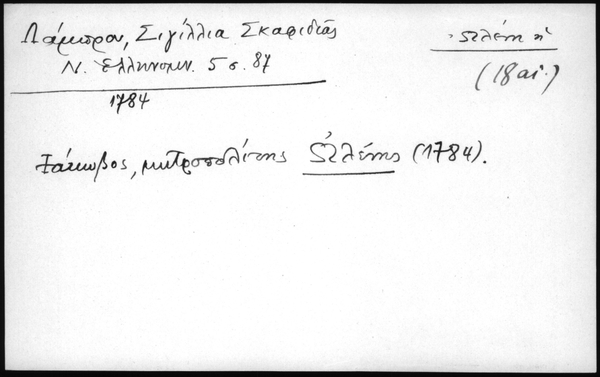 Λάμπρου, Σιγίλλια Σκαφιδιᾶς
Ν. Ἑλληνομν. 5 σ. 87
1784
Ὠλένη ἡ
(18 αἰ.)
Ἰάκωβος, μητροπολίτης Ὠλένης (1784).